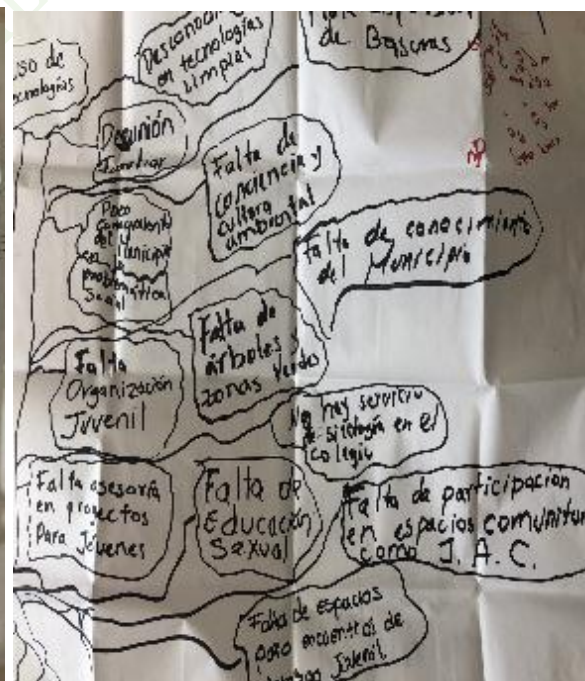 uso de
tecnologías
Desconoci
en tecnologías
simples
de Basuras
Desunión
Familiar
Falta de
conciencia y
cultura
ambiental
Poco
conocimiento
del Municipio
en
problemática
Social
Falta de conocimiento
del Municipio
Falta de
árboles y
zonas verdes
Falta
Organización
Juvenil
No hay servicio
de sicología en el
colegio
Falta asesoría
en proyectos
Para Jóvenes
Falta de
Educación
Sexual
Falta de participación
en espacios comunitar
como J. A. C.
Falta de espacios
para encuentros de
Juvenil